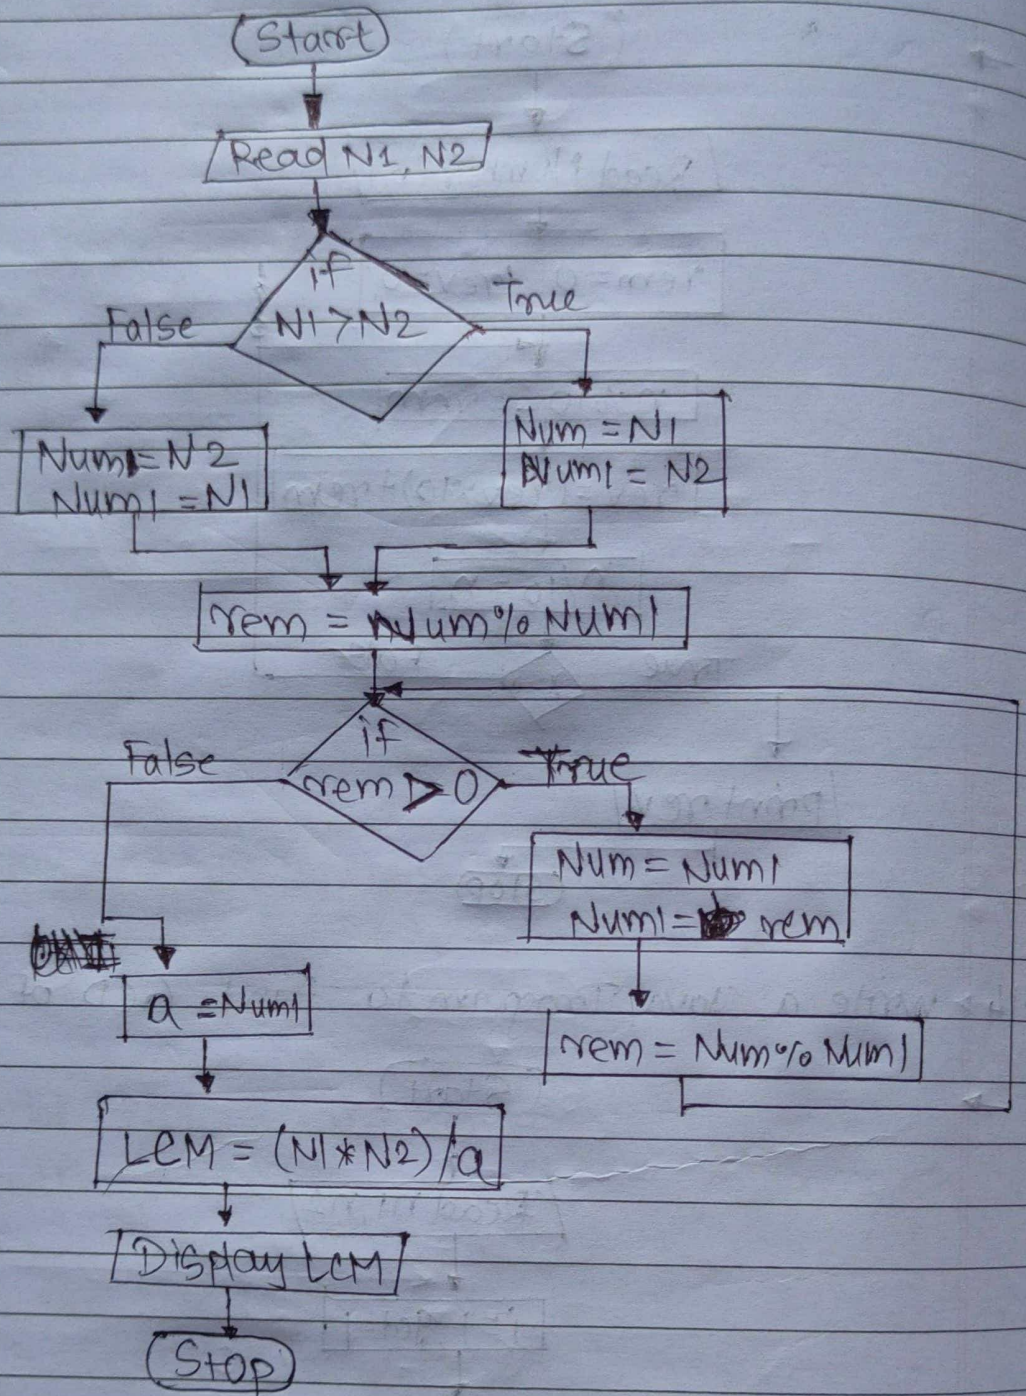 Start
Read N1, N2
if
N1>N2
True
False
Num = N1
Num1 = N2
Num = N2
Num1 = N1
rem = Num%Num1
if
rem > 0
False
True
Num = Num1
Num1 = rem
rem = Num%Num1
a = Num1
LCM = (N1*N2)/a
Display LCM
Stop